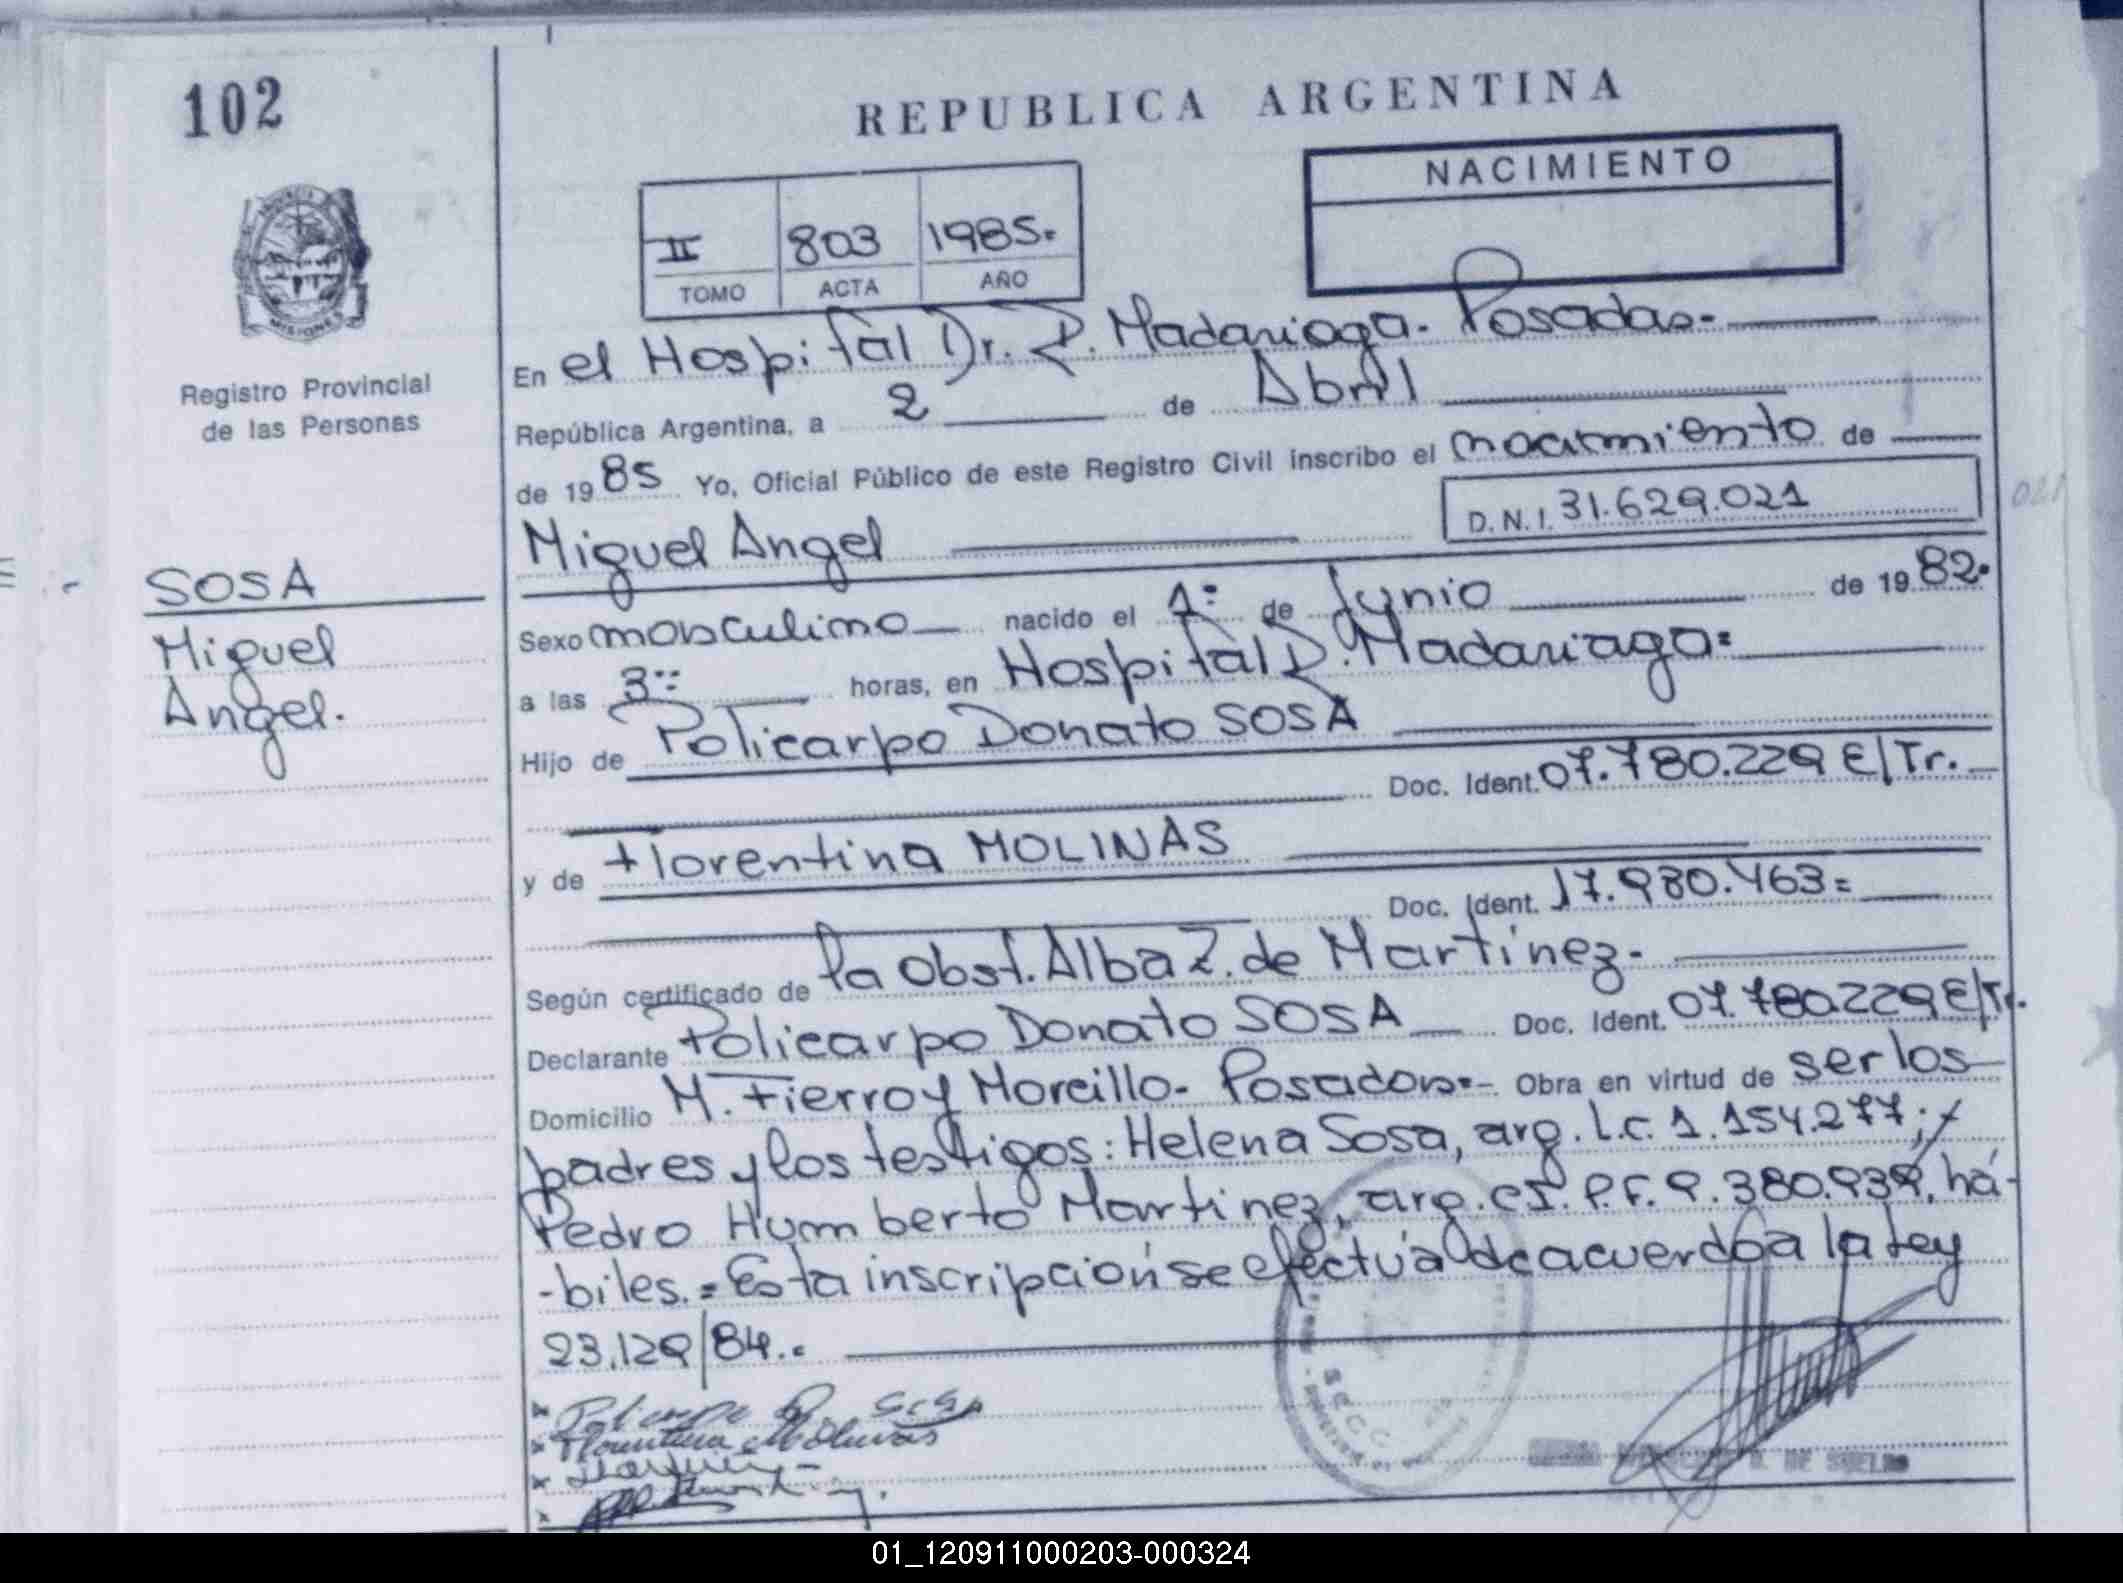 102
REPUBLICA ARGENTINA
NACIMIENTO
II 803 1985.
TOMO ACTA AÑO
PROVINCIA
MISIONES
Registro Provincial
de las Personas
En el Hospital Dr. R. Madariaga. Posadas.-
República Argentina, a 2 de Abril
de 1985 Yo, Oficial Público de este Registro Civil inscribo el nacimiento de
D.N.I. 31.629.021
021
Miguel Angel
SOSA
Miguel
Angel.
Sexo masculino nacido el 1º de Junio de 1982.
a las 3.. horas, en Hospital R. Madariaga=
Hijo de Policarpo Donato SOSA
Doc. Ident. 07.780.229 E/Tr.
y de Florentina MOLINAS
Doc. Ident. 17.980.463=
Según certificado de la Obst. Alba Z. de Martínez.
Declarante Policarpo Donato SOSA Doc. Ident. 07.780.229 E/Tr.
Domicilio M. Fierro y Morcillo- Posadas.- Obra en virtud de ser los
padres y los testigos: Helena Sosa, arg. L.C. 1.154.277; y
Pedro Humberto Martinez, arg. C.I. P.F. 9.380.939, há-
-biles.= Esta inscripción se efectúa de acuerdo a la Ley
23.129/84..
Policarpo D Sosa
Florentina Molinas
DE SUELDO
01_120911000203-000324